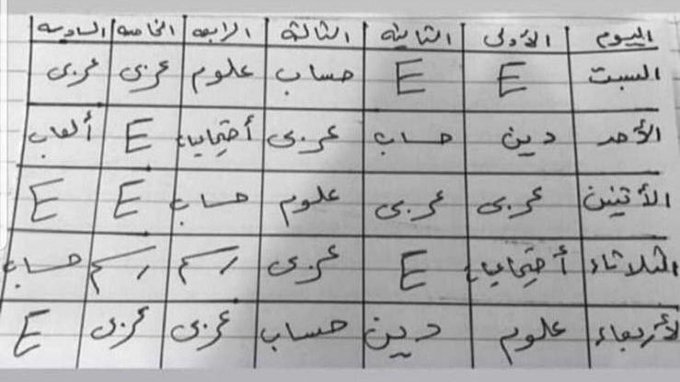 اليوم الأولى الثانية الثالثة الرابعة الخامسة السادسة
السبت E E حساب علوم عربى عربى
الأحد دين حساب عربى أجتماعيات E ألعاب
الأتنين عربى عربى علوم حساب E E
الثلاثاء أجتماعيات E عربى رسم رسم حساب
الأربعاء علوم دين حساب عربى عربى E